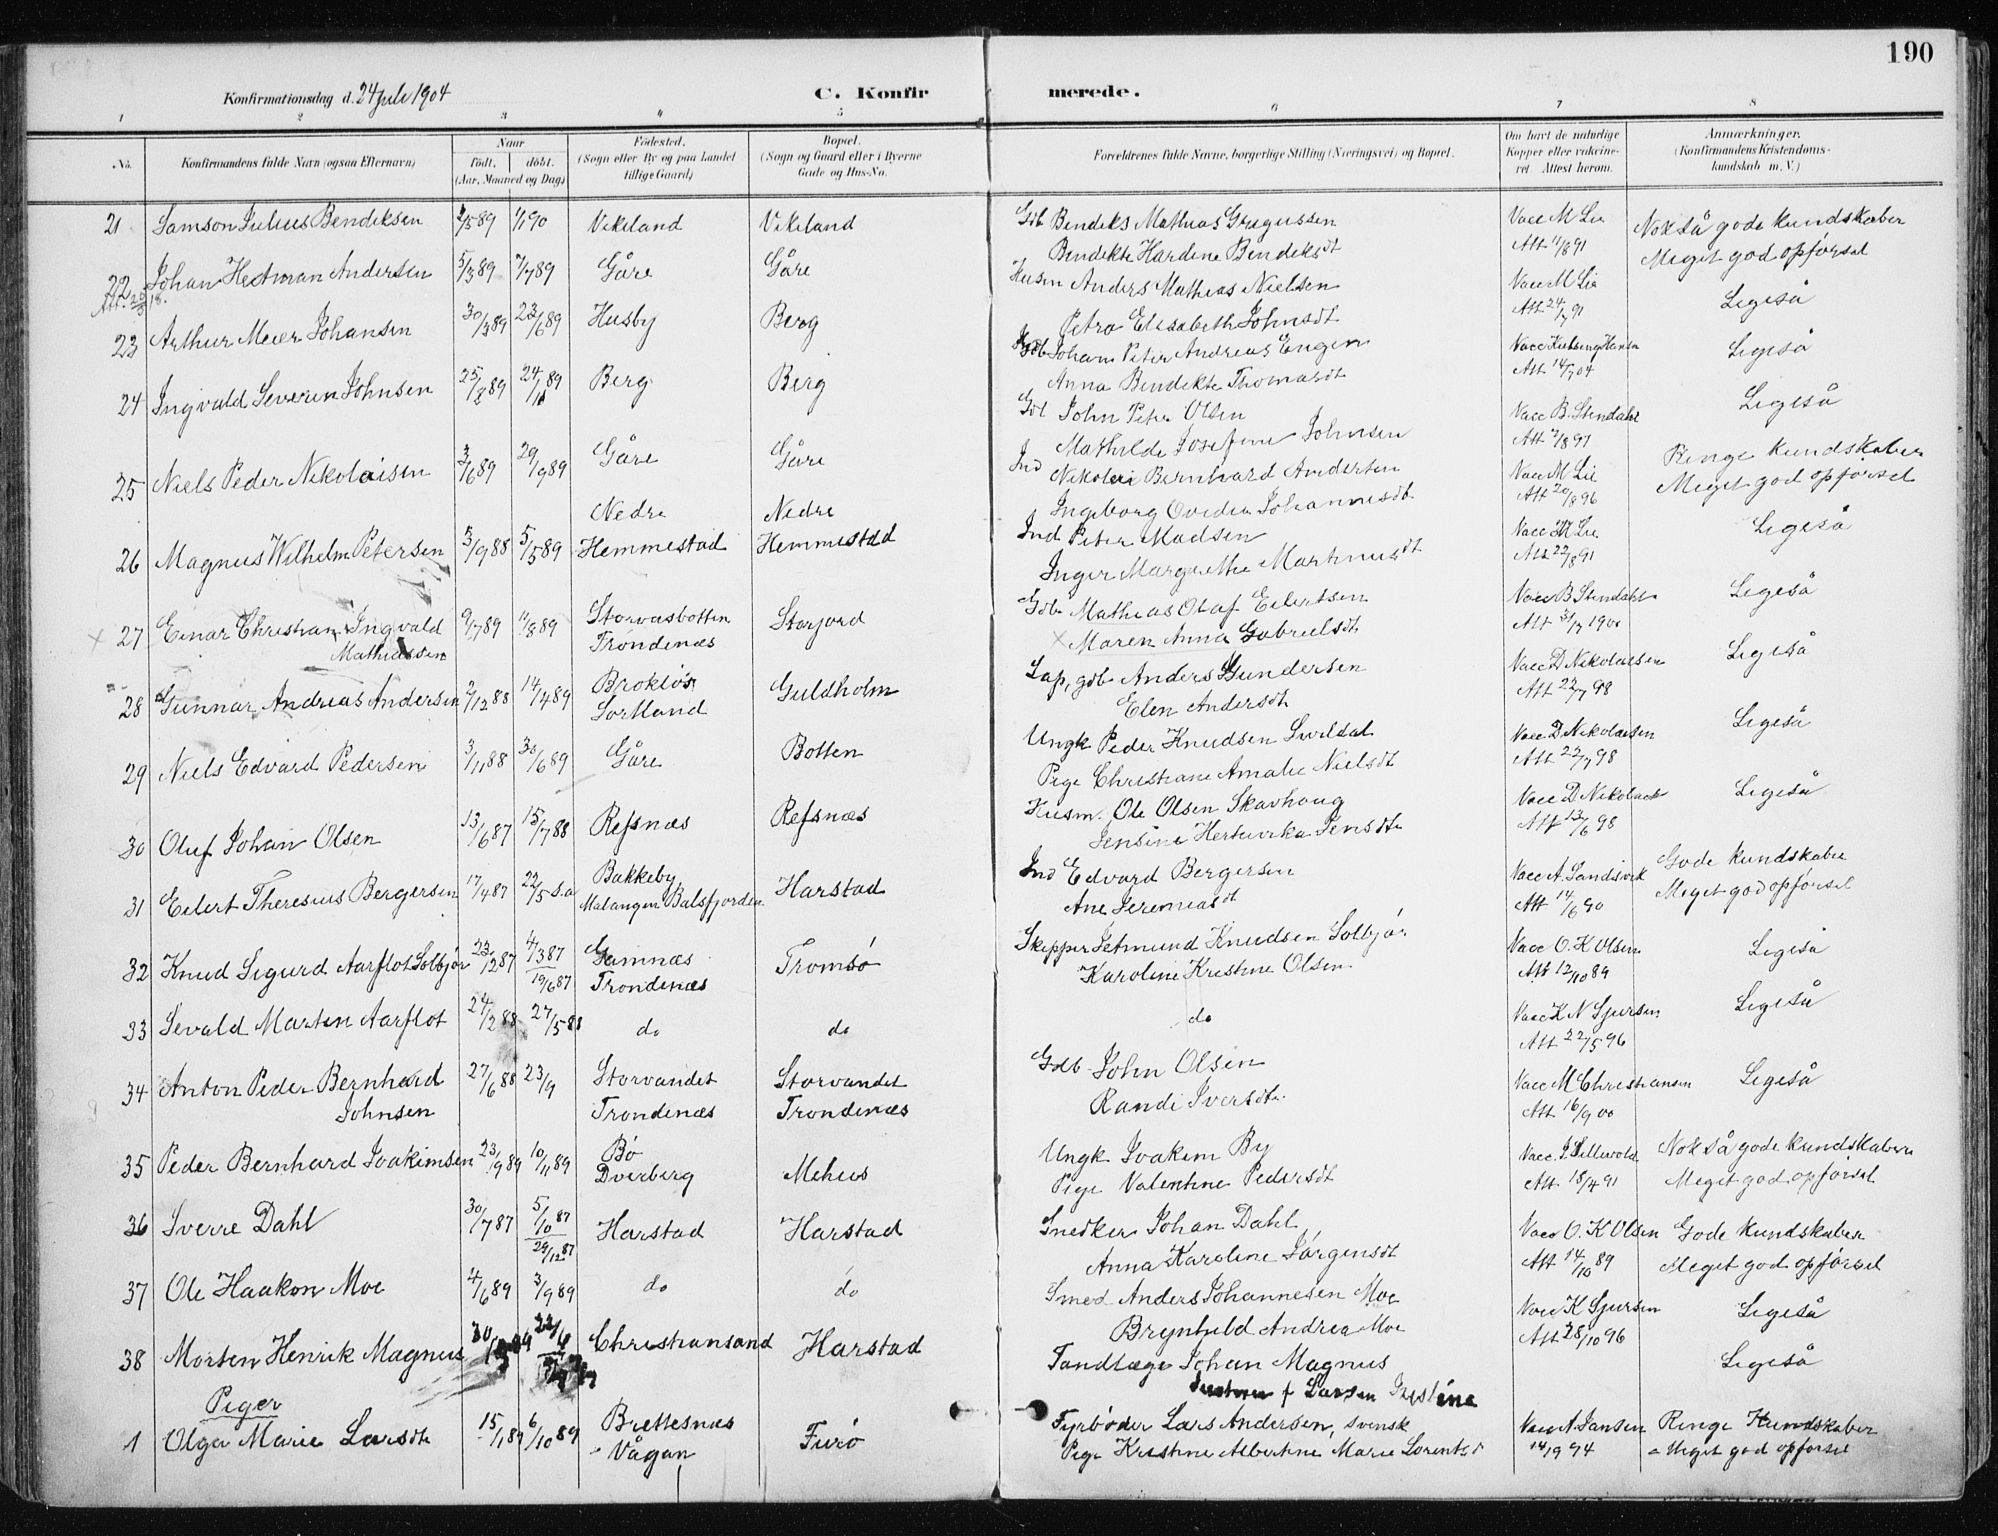 190
Konfirmationsdag d. 24 juli 1904 C. Konfirmerede.
1 2 3 4 5 6 7 8
No. Konfirmandens fulde Navn (ogsaa Efternavn) Naar født, døbt. (Aar, Maaned og Dag) Fødested. (Sogn eller By og paa Landet tillige Gaard) Bopæl. (Sogn og Gaard eller i Byerne Gade og Hus-No. Forældrenes fulde Navne, borgerlige Stilling (Næringsvei) og Bopæl. Om havt de naturlige Kopper eller vakcineret Attest herom. Anmærkninger. (Konfirmandens Kristendomskundskab m. V.)
21 Samson Julius Bendiksen /5 89 1/1 90 Vikeland Vikeland Gdb Bendiks Mathias Gregussen Vacc M Lie Nokså gode kundskaber
Bendikte Hardine Bendiksdt Att 11/8 91 Meget god opførsel
22 Johan Hestman Andersen 5/3 89 7/7 89 Gåre Gåre Husm Anders Mathias Nielsen Vacc M Lie Ligeså
Petra Elisabeth Johnsdt Att 24/7 91
23 Arthur Meier Johansen 30/3 89 23/6 89 Husby Berg Gdb Johan Peter Andreas Engen Ligeså
Anna Bendikte Thomasdt Att 14/7 04
24 Ingvald Severin Johnsen 25/8 89 24/11 89 Berg Berg Gdb John Peter Olsen Vacc B. Stendahl Ligeså
Mathilde Josefine Johnsen Att 2/8 97
25 Niels Peder Nikolaisen 3/6 89 29/9 89 Gåre Gåre Ind Nikolai Bernhard Andersen Vacc M Lie Ringe kundskaber
Ingeborg Ovedia Johannesdt. Att 20/8 96 Meget god opførsel
26 Magnus Wilhelm Petersen 3/9 88 5/5 89 Nedre Hemmestad Nedre Hemmestad Ind Peter Madsen Vacc M Lie Ligeså
Inger Margrethe Martinusdt Att 22/8 91
27 Einar Christian Ingvald Mathiassen 9/7 89 11/8 89 Storvasbotten Trondenæs Storjord Gdb Mathias Olaf Eilertsen Vacc B Stendahl Ligeså
Maren Anna Gabrielsdt Att 31/7 1900
28 Gunnar Andreas Andersen 2/12 88 14/4 89 Brokløs Sortland Guldholm Lap, gdb Anders Gundersen Vacc D Nikolaisen Ligeså
Elen Andersdt Att 22/7 98
29 Niels Edvard Pedersen 3/11 88 30/6 89 Gåre Botten Ungk Peder Knudsen Vacc D Nikolaisen Ligeså
Pige Christiane Amalie Nielsdt Att 22/7 98
30 Oluf Johan Olsen 13/6 87 15/7 88 Refsnæs Refsnæs Husm. Ole Olsen Skavhaug Vacc D Nikolais Ligeså
Jensine Hertevika Jensdt. Att 13/6 98
31 Eilert Theresius Bergersen 17/4 87 22/5 s.a Bakkeby Malangen Balsfjorden Harstad Ind Edvard Bergersen Vacc A. Sandsvik Gode kundskaber
Ane Jeremiasdt Att 14/6 90 Meget god opførsel
32 Knud Sigurd Aarflot Solbjør 23/12 87 4/3 87 19/6 87 Gamnæs Trondenæs Tromsø Skipper Setmund Knudsen Solbjør Vacc O. K Olsen Ligeså
Karoline Kristine Olsen Att 12/10 89
33 Sevald Martin Aarflot 24/2 88 27/5 88 do do do Vacc K N Sjursen Ligeså
Att 22/5 96
34 Anton Peder Bernhard Johnsen 27/6 88 23/9 Storvandet Trondenæs Storvandet Trondenæs Gdb John Olsen Vacc M Christiansen Ligeså
Randi Iversdt. Att 16/9 00
35 Peder Bernhard Joakimsen 23/9 89 10/11 89 Bø Dverberg Mehus Ungk Joakim By Vacc. J. Lillevold Nokså gode kundskaber
Pige Valentine Pedersdt Att 18/4 91 Meget god opførsel
36 Sverre Dahl 30/7 87 5/10 87 29/12 87 Harstad Harstad Snedker Johan Dahl Vacc O. K Olsen Gode kundskaber
Anna Karoline Jørgensdt Att 14/10 89 Meget god opførsel
37 Ole Haakon Moe 4/6 89 3/9 89 do do Smed Anders Johannesen Moe Vacc K Sjursen Ligeså
Brynhild Andrea Moe Att 28/10 96
38 Morten Henrik Magnus Christiansand Harstad Tandlæge Johan Magnus Ligeså
f Larsen
Piger
1 Olga Marie Larsdt 15/1 89 6/10 89 Brettesnæs Vågan Furø Fyrbøder Lars Andersen, svensk Vacc A. Jansen Ringe Kundskaber
Pige Kristine Albertine Marie Lorentsd 14/9 94 Meget god opførsel